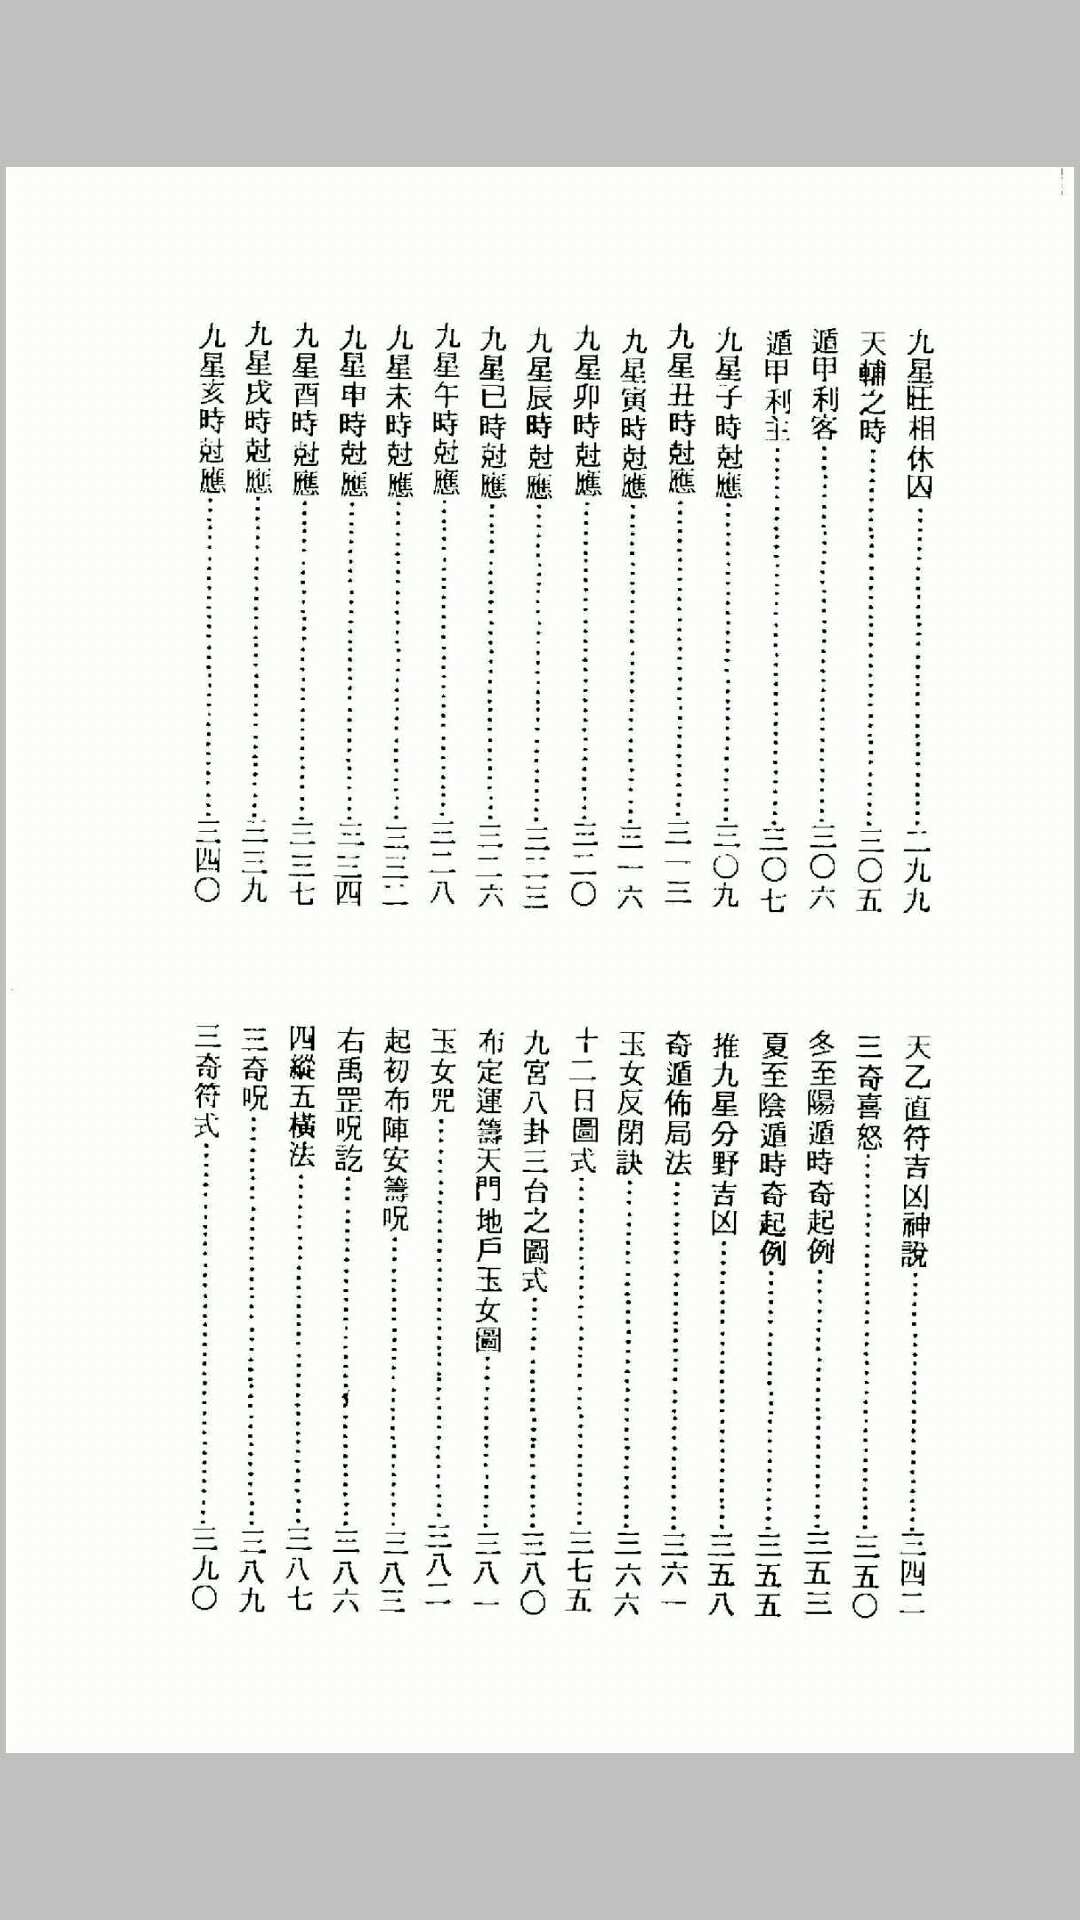 九星旺相休囚………二九九
天輔之時………三〇五
遁甲利客………三〇六
遁甲利主………三〇七
九星子時尅應………三〇九
九星丑時尅應………三一三
九星寅時尅應………三一六
九星卯時尅應………三二〇
九星辰時尅應………三二三
九星巳時尅應………三二六
九星午時尅應………三二八
九星未時尅應………三三二
九星申時尅應………三三四
九星酉時尅應………三三七
九星戌時尅應………三三九
九星亥時尅應………三四〇
天乙直符吉凶神說………三四二
三奇喜怒………三五〇
冬至陽遁時奇起例………三五三
夏至陰遁時奇起例………三五五
推九星分野吉凶………三五八
奇遁佈局法………三六一
玉女反閉訣………三六六
十二日圖式………三七五
九宮八卦三台之圖式………三八〇
布定運籌天門地戶玉女圖………三八一
玉女咒………三八二
起初布陣安籌呪………三八三
右禹罡呪訖………三八六
四縱五橫法………三八七
三奇呪………三八九
三奇符式………三九〇